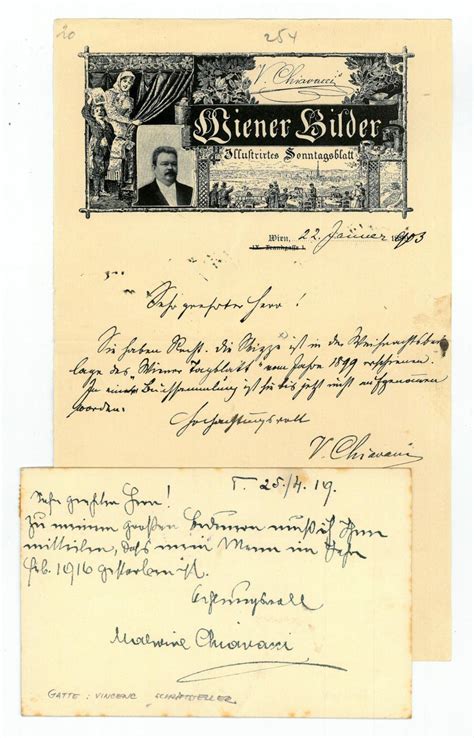 20
254
V. Chiavacci
Wiener Bilder
Illustrirtes Sonntagsblatt
Wien, 22. Jänner 1903
IX. Frankgasse 1.
Sehr geehrter Herr!
Sie haben Recht. die Skizze ist in der Weihnachtsbei-
lage des "Wiener Tagblatts" vom Jahre 1899 erschienen.
In eine Buchsammlung ist sie bis jetzt nicht aufgenommen
worden.
Hochachtungsvoll
V. Chiavacci
25/4 19.
Sehr geehrter Herr!
Zu meinem großen Bedauern muß ich Ihnen
mitteilen, daß mein Mann im
Feb. 1916 gestorben ist.
Achtungsvoll
Malwine Chiavacci
GATTE: VINCENC SCHRIFTSTELLER